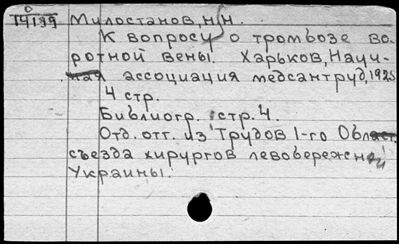 0
14139 Милостанов, Н.Н.
К вопросу о тромбозе во-
ротной вены. Харьков, Науч-
ная ассоциация медсантруд, 1925
4 стр.
Библиогр. стр. 4.
Отд. отт. из Трудов 1-го Област.
съезда хирургов левобережной
Украины.